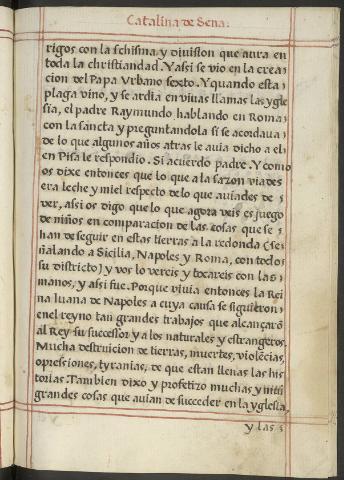 Catalina de Sena.
rigos con la schisma y diuision que aura en
toda la christiandad. Y assi se vio en la crea-
cion del Papa Vrbano sexto. Y quando esta
plaga vino, y se ardia en viuas llamas la ygle
sia, el padre Raymundo hablando en Roma
con la sancta y preguntandola si se acordaua
de lo que algunos años atras le auia dicho a el
en Pisa le respondio. Si acuerdo padre. Y como
os dixe entonces que lo que a la sazon viades
era leche y miel respecto de lo que auiades de
ver, assi os digo que lo que agora veis es juego
de niños en comparacion de las cosas que se
han de seguir en estas tierras a la redonda (se
ñalando a Sicilia, Napoles y Roma, con todo
su districto) y vos lo vereis y tocareis con las
manos, y assi fue. Porque viuia entonces la Rei
na Iuana de Napoles a cuya causa se siguieron
en el reyno tan grandes trabajos que alcançarõ
al Rey su successor y a los naturales y estrangeros.
Mucha destruicion de tierras, muertes, violẽcias,
opressiones, tyranias, de que estan llenas las his
torias. Tambien dixo y profetizo muchas y mui
grandes cosas que auian de succeder en la yglesia,
y las